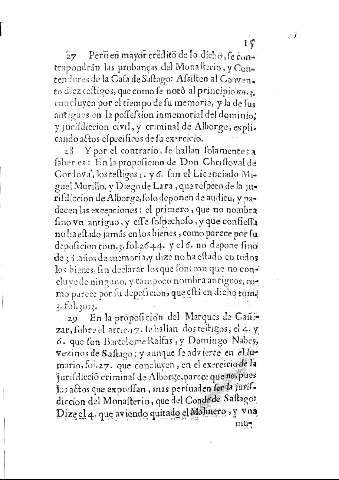 15
27 Pero en mayor credito de lo dicho, se con-
trapondràn las probanças del Monasterio, y Con-
tendores de la Casa de Sastago: Assisten al Conven-
to diez testigos, que como se notò al principio nu.3.
concluyen por el tiempo de su memoria, y la de sus
antiguos en la possession inmemorial del dominio,
y jurisdiccion civil, y criminal de Alborge, expli-
cando actos especificos de su exercicio.
28 Y por el contrario, se hallan solamente: a
saber es: En la proposicion de Don Christoval de
Cordova, los testigos 1. y 6. son el Licenciado Mi-
guel Murillo, y Diego de Lara, que respeto de la ju-
risdiccion de Alborge, solo deponen de auditu, y pa-
decen las excepciones: el primero, que no nombra
sino vn antiguo, y esse sospechoso, y que confiessa
no ha estado jamàs en los bienes, como parece por su
deposicion tom.3. fol.2644. y el 6. no depone sino
de 38. años de memoria, y dize no ha estado en todos
los bienes, sin declarar los que son: con que no con-
cluye de ninguno, y tampoco nombra antiguos, co-
mo parece por su deposicion, que està en dicho tom.
3. fol.3013.
29 En la proposicion del Marques de Cañi-
zar, sobre el artic.17. se hallan dos testigos, el 4. y
6. que son Bartolome Ralfas, y Domingo Nabes,
vezinos de Sastago; y aunque se advierte en el su-
mario, fol.27. que concluyen, en el exercicio de la
jurisdicciõ criminal de Alborge, parece que no, pues
los actos que expressan, mas persuaden ser la juris-
diccion del Monasterio, que del Conde de Sastago:
Dize el 4. que aviendo quitado el Molinero, y vna
mu-